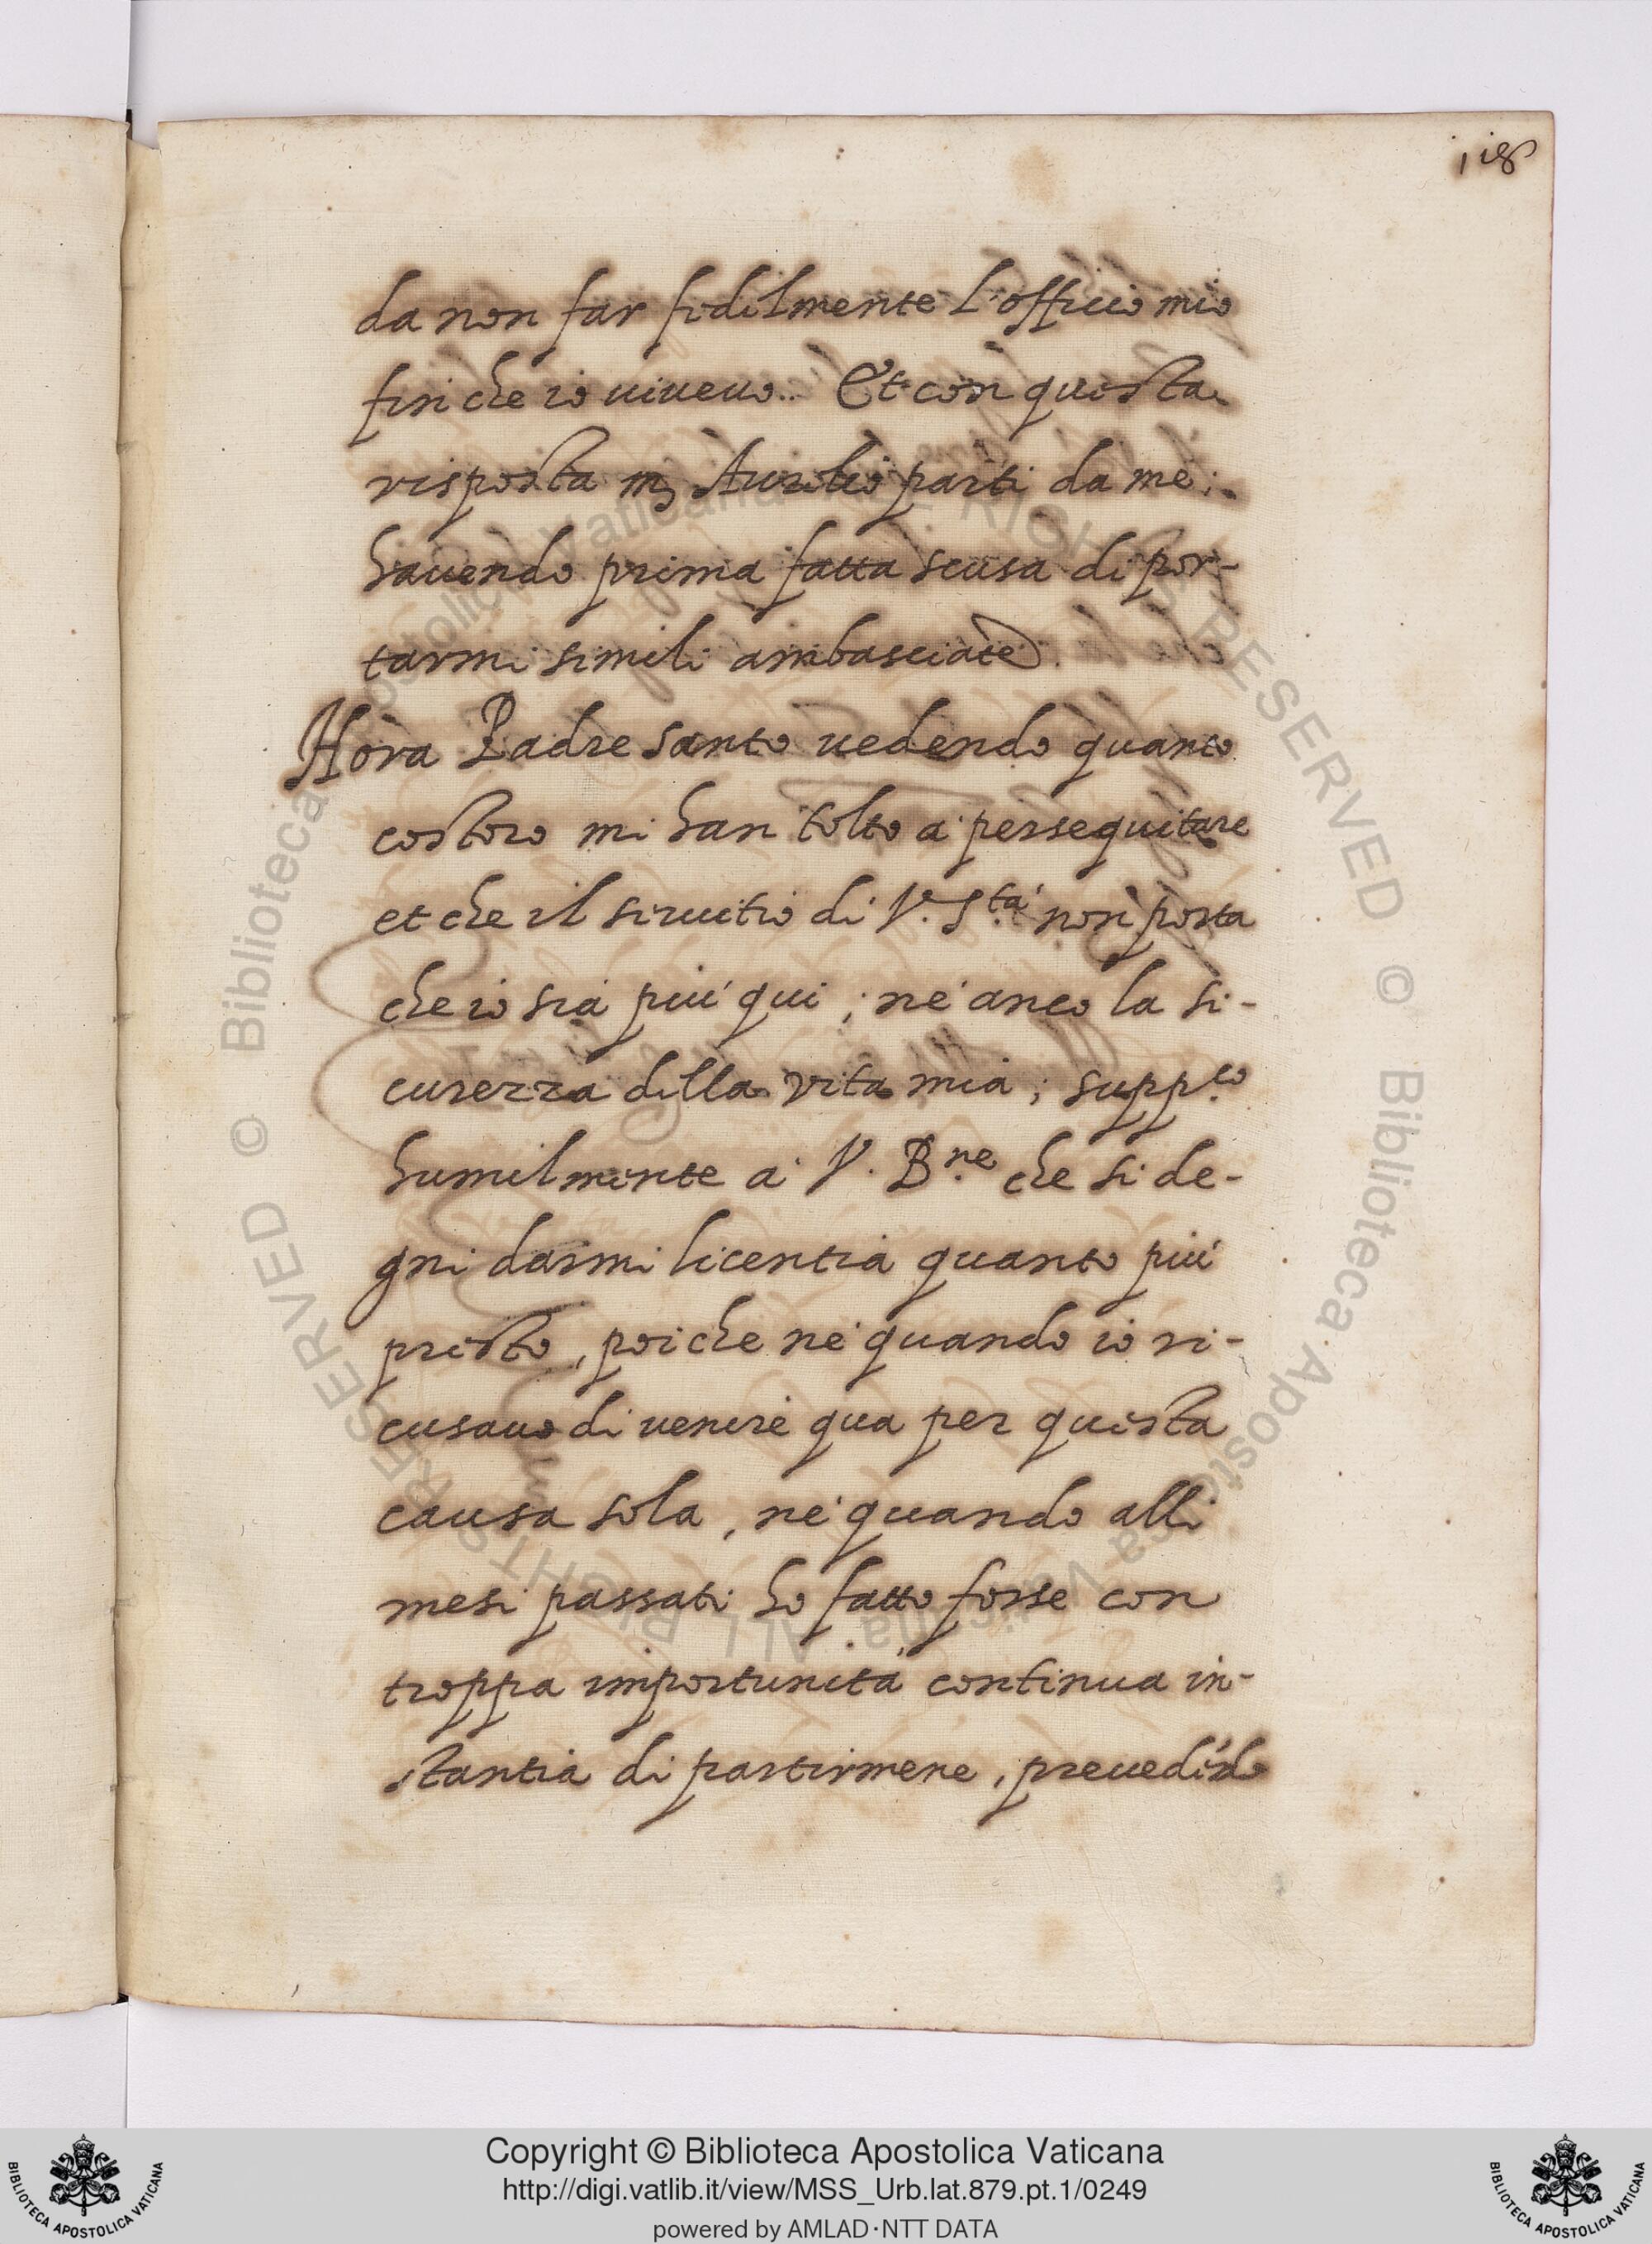 118
da non far fidilmente l'officio mio
fin che io vivevo. Et con questa
risposta m. Aurelio parti da me;
havendo prima fatta scusa di por-
tarmi simili ambasciate.
Hora Padre santo vedendo quanto
costoro mi han tolto à perseguitare
et che il servitio di V. S.tà non porta
che io sia più qui; né anco la si-
curezza della vita mia; supp.co
humilmente à V. B.ne che si de-
gni darmi licentia quanto più
presto, poi che né quando io ri-
cusavo di venire qua per questa
causa sola, né quando alli
mesi passati ho fatto forse con
troppa importunità continua in-
stantia di partirmene, prevedēdo
© Biblioteca Apostolica Vaticana ALL RIGHTS RESERVED
© Biblioteca Apostolica Vaticana ALL RIGHTS RESERVED
Copyright © Biblioteca Apostolica Vaticana
http://digi.vatlib.it/view/MSS_Urb.lat.879.pt.1/0249
powered by AMLAD·NTT DATA
BIBLIOTECA APOSTOLICA VATICANA
BIBLIOTECA APOSTOLICA VATICANA